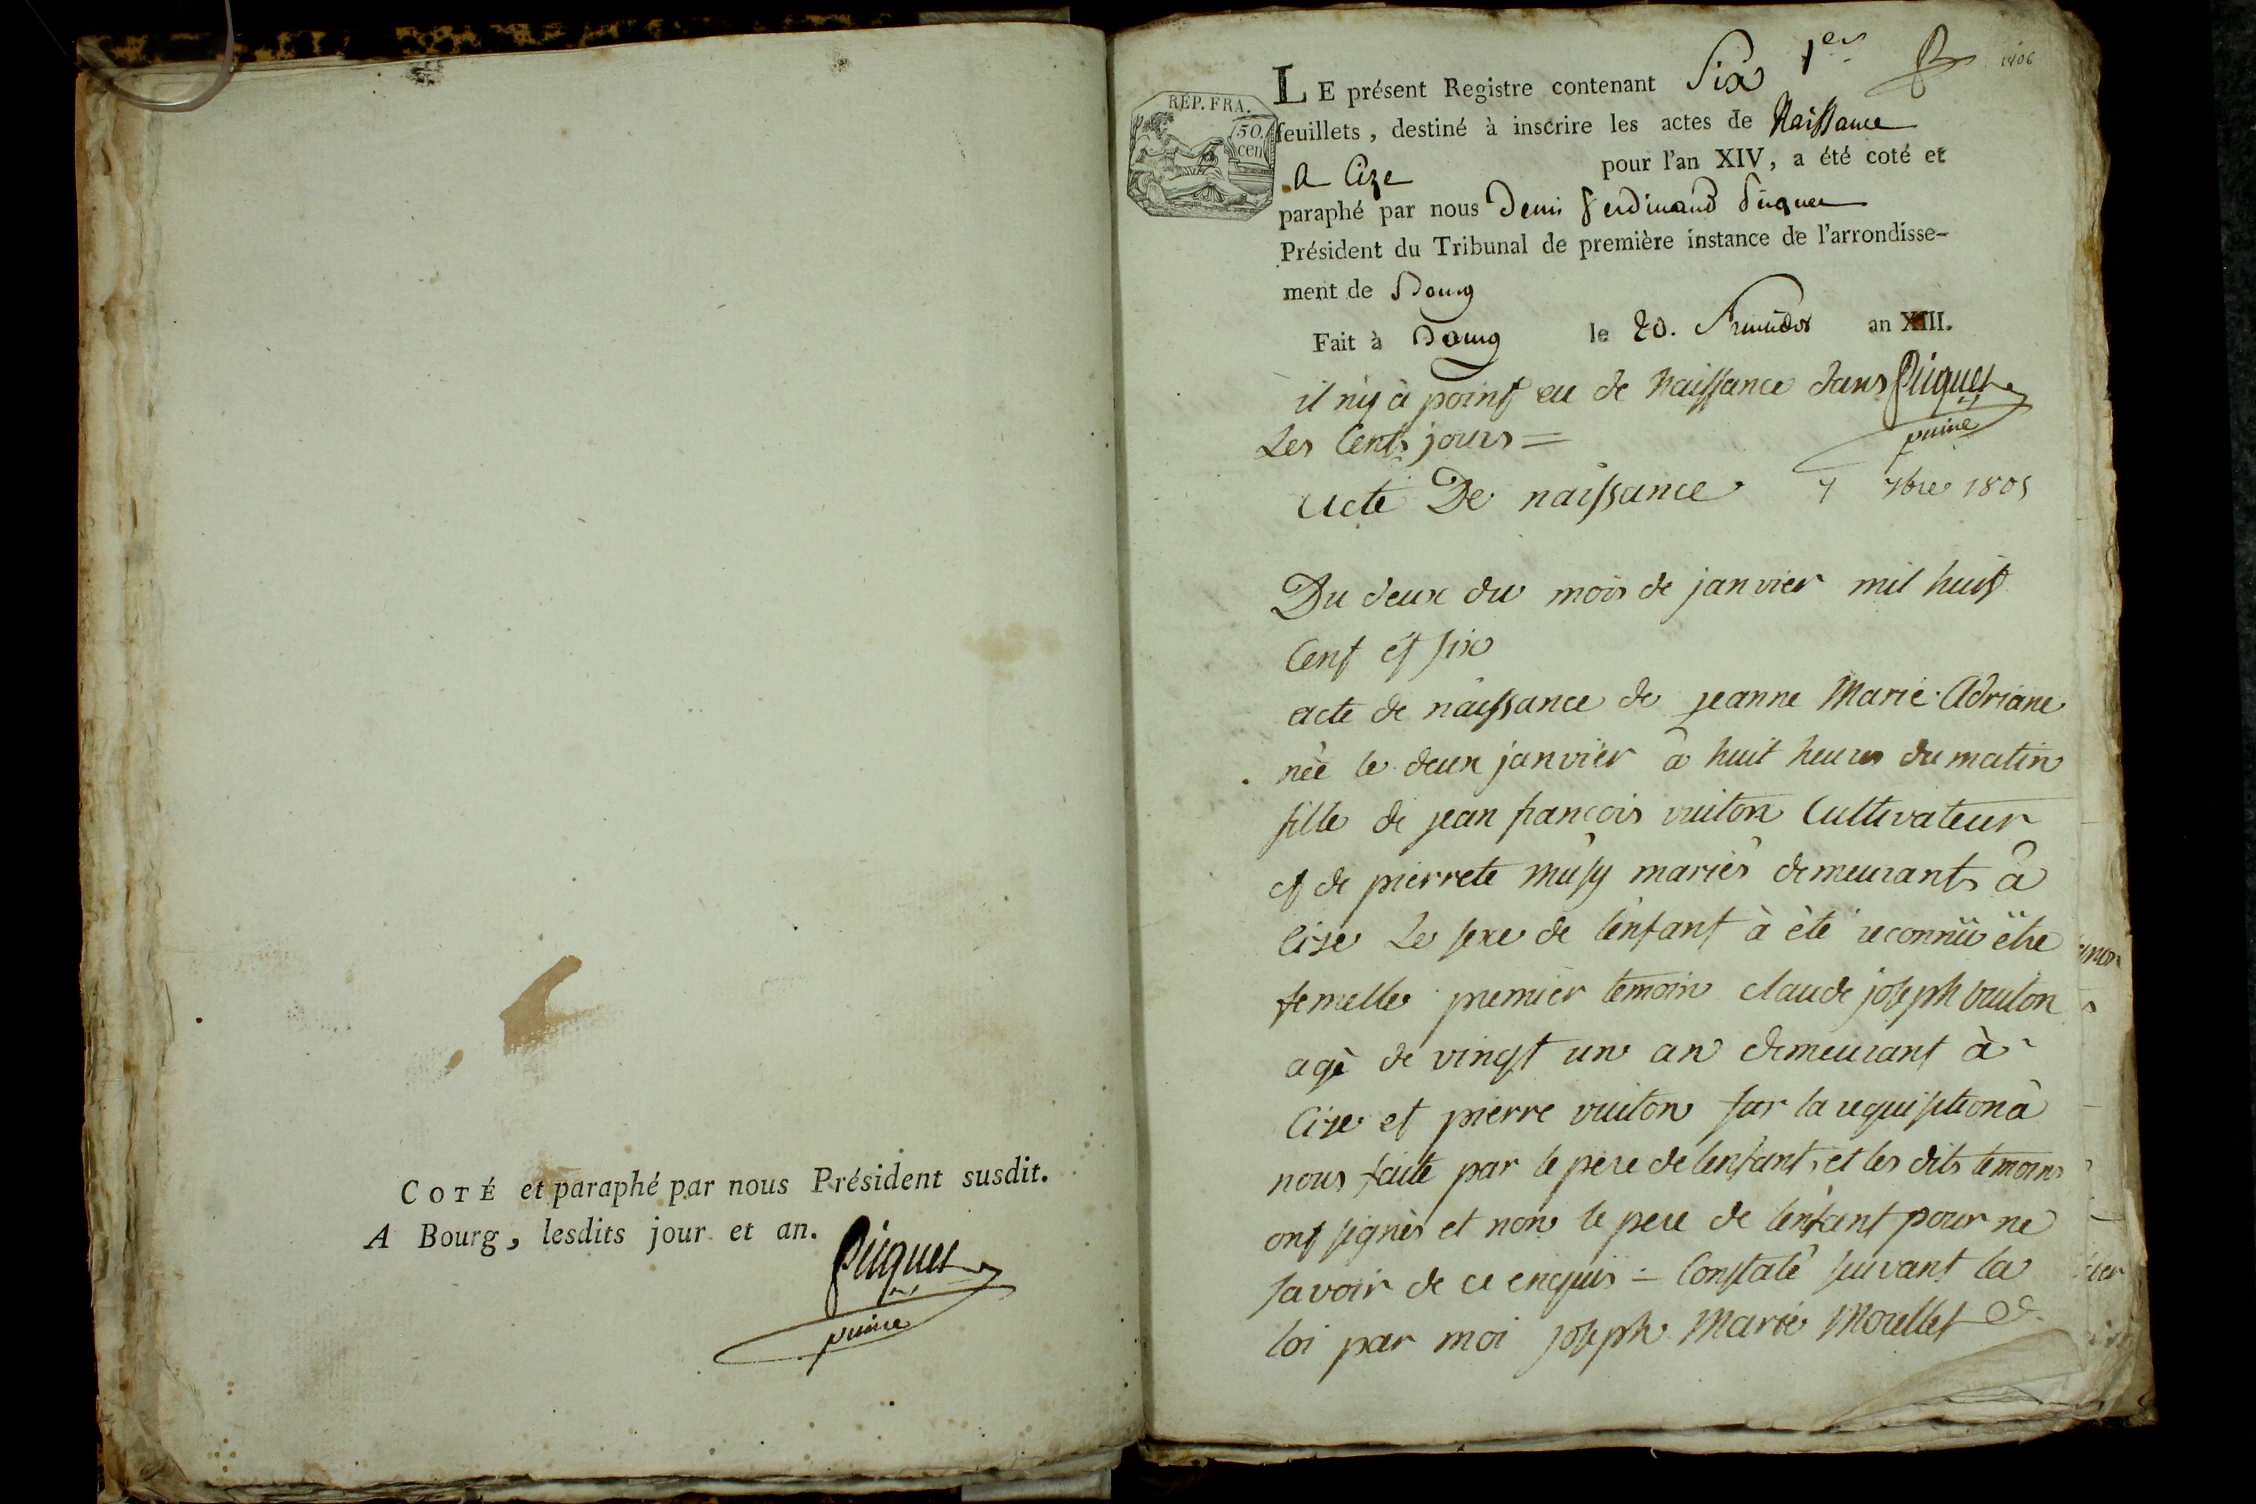 COTÉ et paraphé par nous Président susdit.
A Bourg, lesdits jour et an.
Picquet
puiné
1er
1806
RÉP. FRA.
50.
cen
LE présent Registre contenant Six
feuillets, destiné à inscrire les actes de Naissance
A Cize pour l'an XIV, a été coté et
paraphé par nous Denis Ferdinand Picquet
Président du Tribunal de première instance de l'arrondisse-
ment de Bourg
Fait à Bourg le 20. Fructidor an XIII.
il n'y à point eu de Naissance dans Picquet
puiné
Les Cents jours =
Acte De naissance 7 7bre 1805
Du deux du mois de janvier mil huit
Cent et six
acte de naissance de jeanne Marie Adriane
née le deux janvier à huit heures du matin
fille de jean françois vuiton Cultivateur
et de pierrete Musy mariés demeurants à
Cize Le sexe de l'enfant à èté reconnü ëtre
femelle premier temoin claude joseph vuiton
agè de vingt un an demeurant à
Cize et pierre vuiton sur la requisition à
nous faite par le pere de lenfant, et les dits temoins
ont signès et non le pere de lenfant pour ne
savoir de ce enquis = Constaté suivant la
loi par moi joseph Marie Moullet